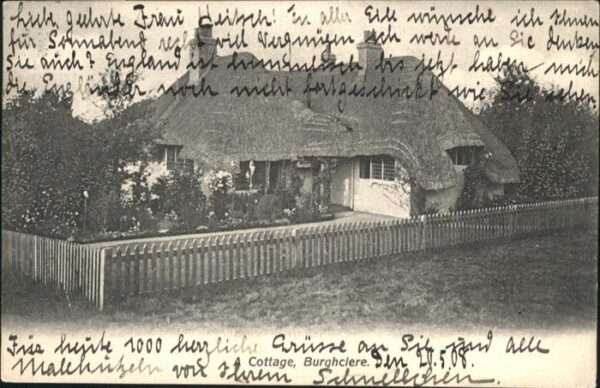 Liebe, geehrte Frau Heitsch! In aller Eile wünsche ich Ihnen
für Sonnabend recht viel Vergnügen ich werde an Sie denken
Sie auch? England ist himmlisch bis jetzt haben mich
die Engländer noch nicht fortgeschickt wie Sie sehen
Für heute 1000 herzliche Grüsse an Sie und alle
Malehutzeln von Ihrem Schnellchen.
Cottage, Burghclere.
Den 20.5.08.